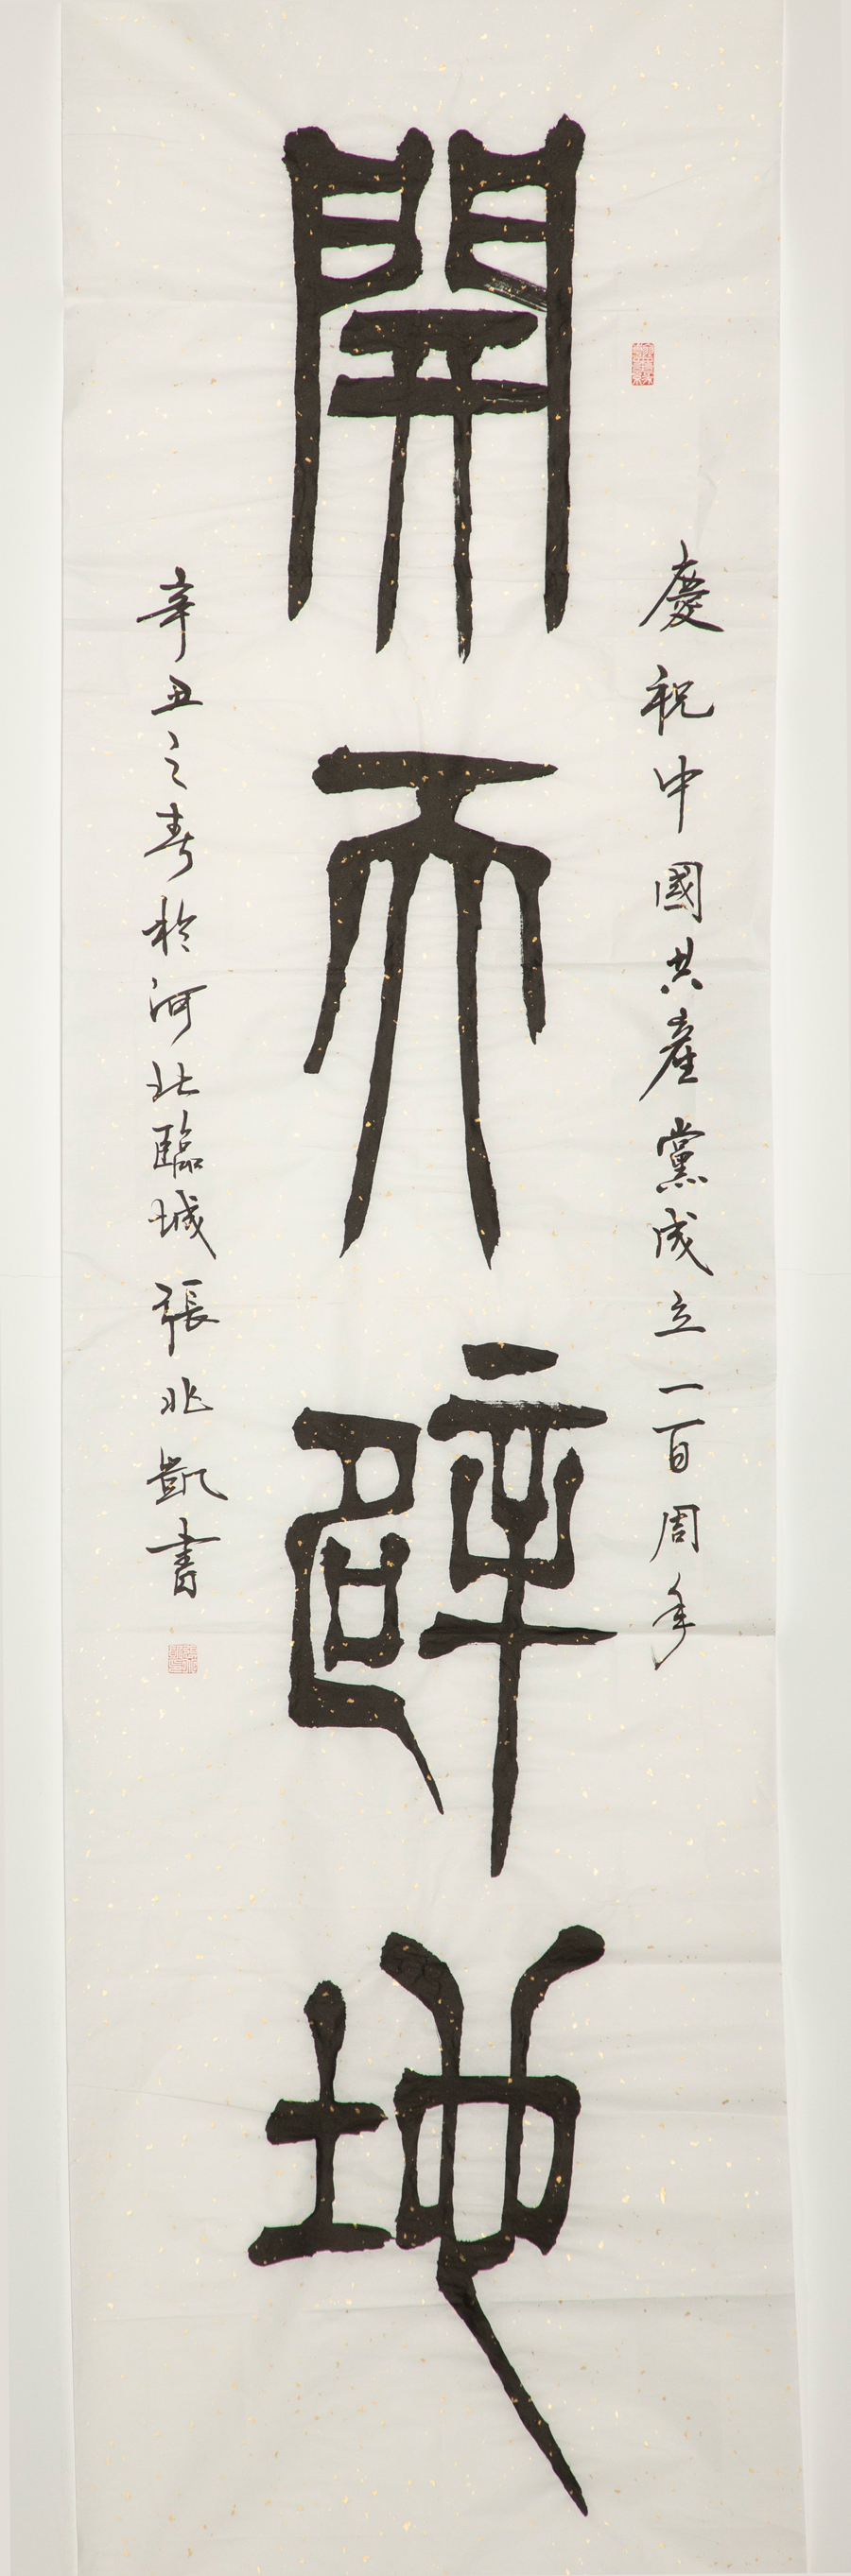 慶祝中國共產黨成立一百周年
開天辟地
辛丑之春於河北臨城張兆凱書